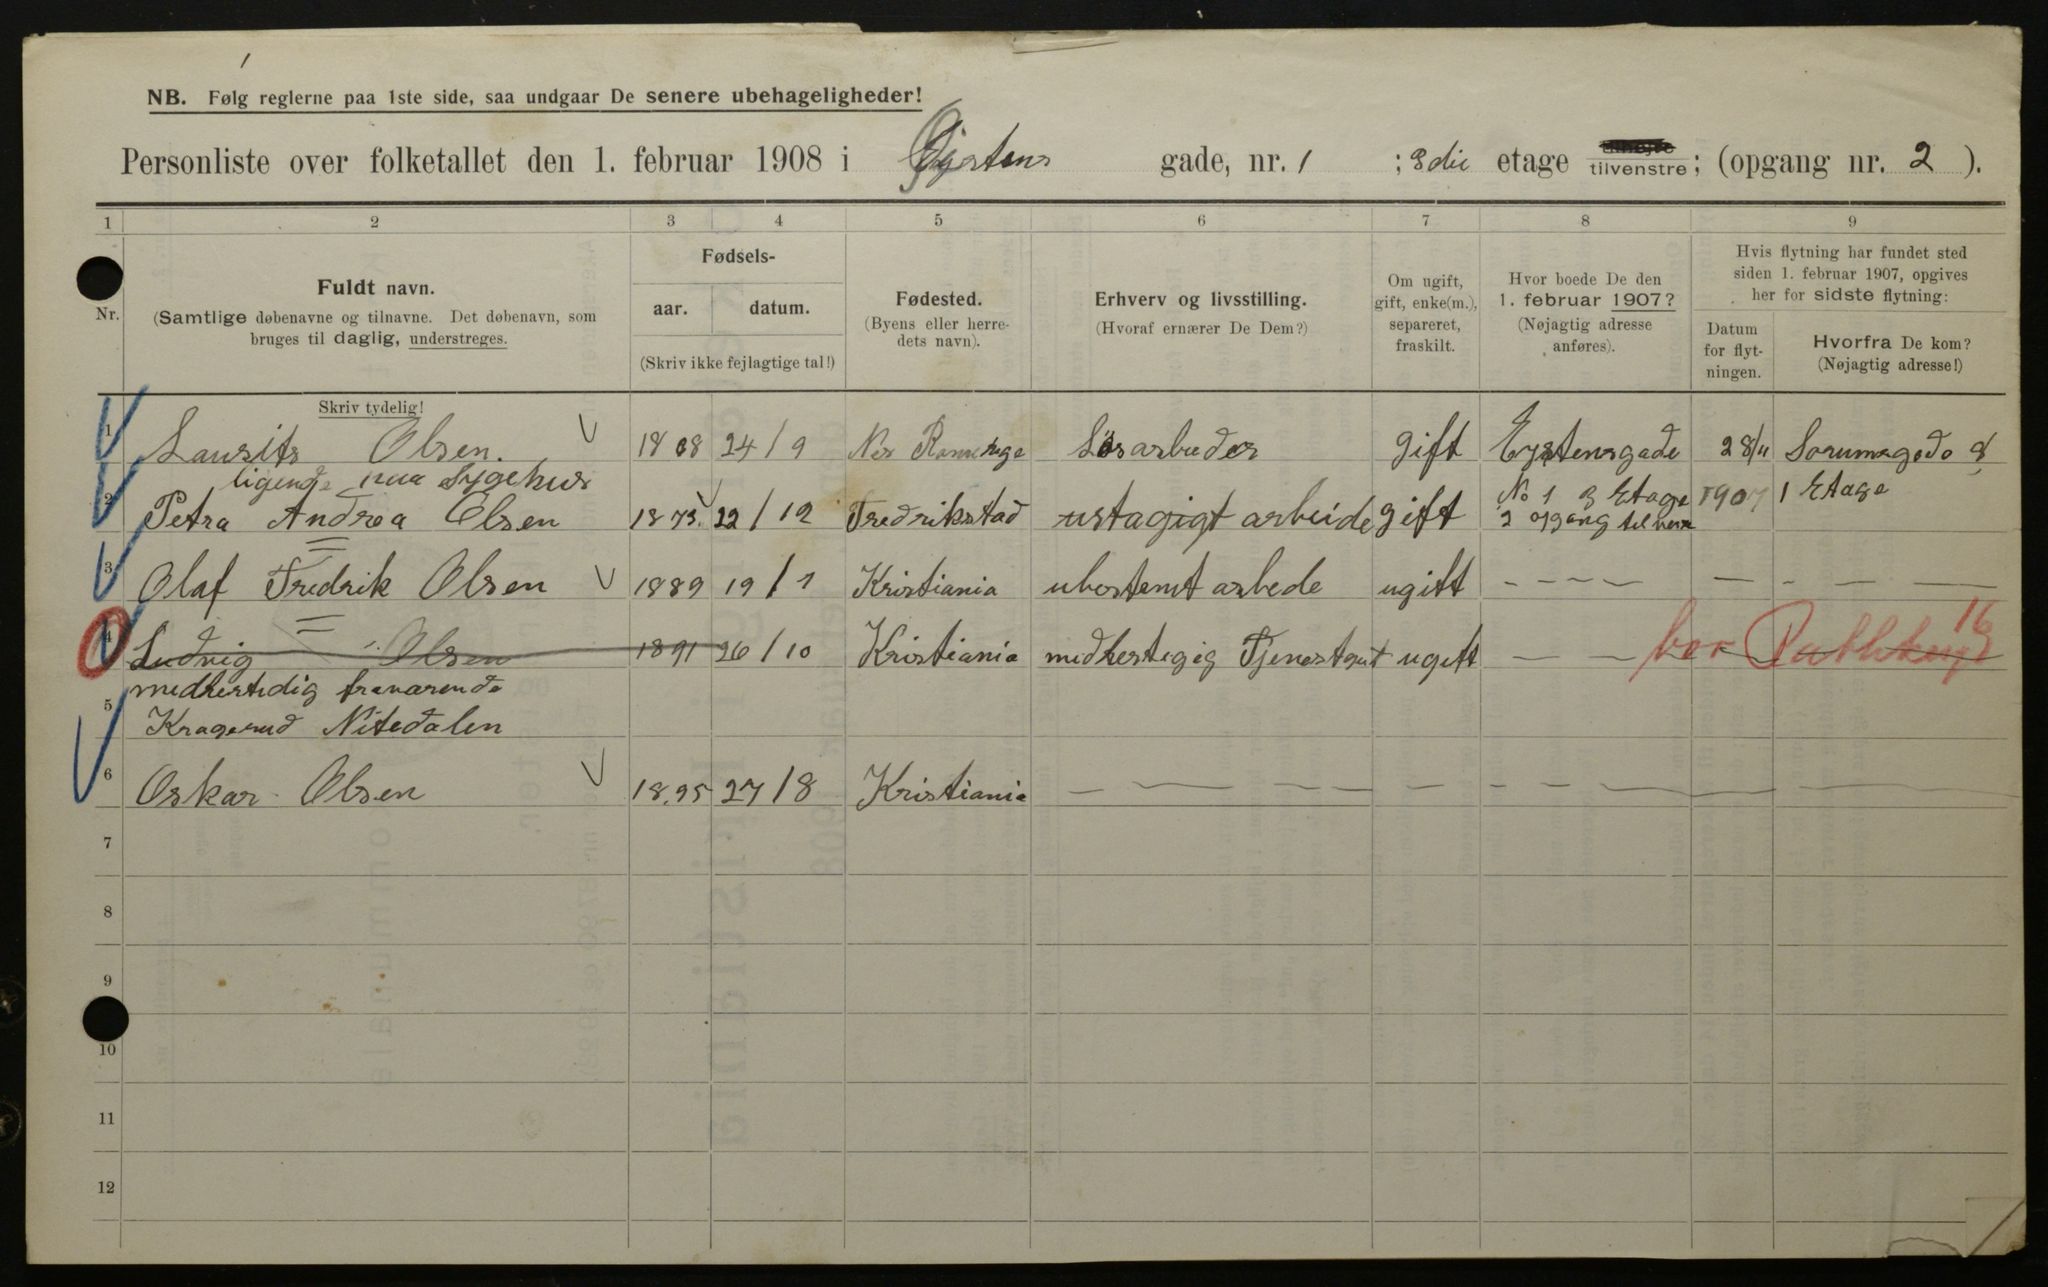 NB. Følg reglerne paa 1ste side, saa undgaar De senere ubehageligheder!
Personliste over folketallet den 1. februar 1908 i Øystens gade, nr. 1 ; 3die etage tilvenstre; (opgang nr. 2 ).
1 2 3 4 5 6 7 8 9
Nr.
Fuldt navn.
(Samtlige døbenavne og tilnavne. Det døbenavn, som
bruges til daglig, understreges.
Skriv tydelig!
Fødsels-
aar. datum.
(Skriv ikke fejlagtige tal!)
Fødested.
(Byens eller herre-
dets navn).
Erhverv og livsstilling.
(Hvoraf ernærer De Dem?)
Om ugift,
gift, enke(m.),
separeret,
fraskilt.
Hvor boede De den
1. februar 1907?
(Nøjagtig adresse
anføres).
Hvis flytning har fundet sted
siden 1. februar 1907, opgives
her for sidste flytning:
Datum
for flyt-
ningen.
Hvorfra De kom?
(Nøjagtig adresse!)
1 Laurits Olsen. 18 68 24/9 Nes Romerige Lösarbeder gift Eystensgade 28/11 Sorumsgade 8
ligende paa Sygehus
2 Petra Andrea Olsen 1873 22/12 Fredrikstad ustagigt arbeide gift No 1 3 Etage 1907 1 Etage
2 opgang til ven
3 Olaf Fredrik Olsen 1889 19/1 Kristiania ubestemt arbede ugift
4 Ludvig Olsen 1891 26/10 Kristiania midlertigig Tjenestgut ugift bor 16
midlertidig fraværende
5 Kragerud Nitedalen
6 Oskar Olsen 1895 27/8 Kristiania
7
8
9
10
11
12